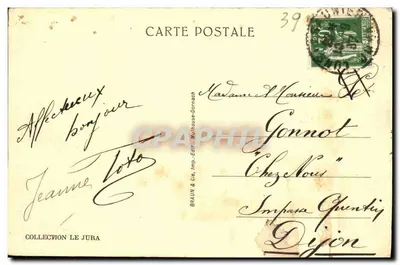 CARTE POSTALE
39
Affectueux
bonjour
Jeanne Toto
Madame et Monsieur
Gonnot
"Chez Nous"
Impasse Quentin
Dijon
BRAUN & Cie, Imp.-Édit. Mulhouse-Dornach
COLLECTION LE JURA